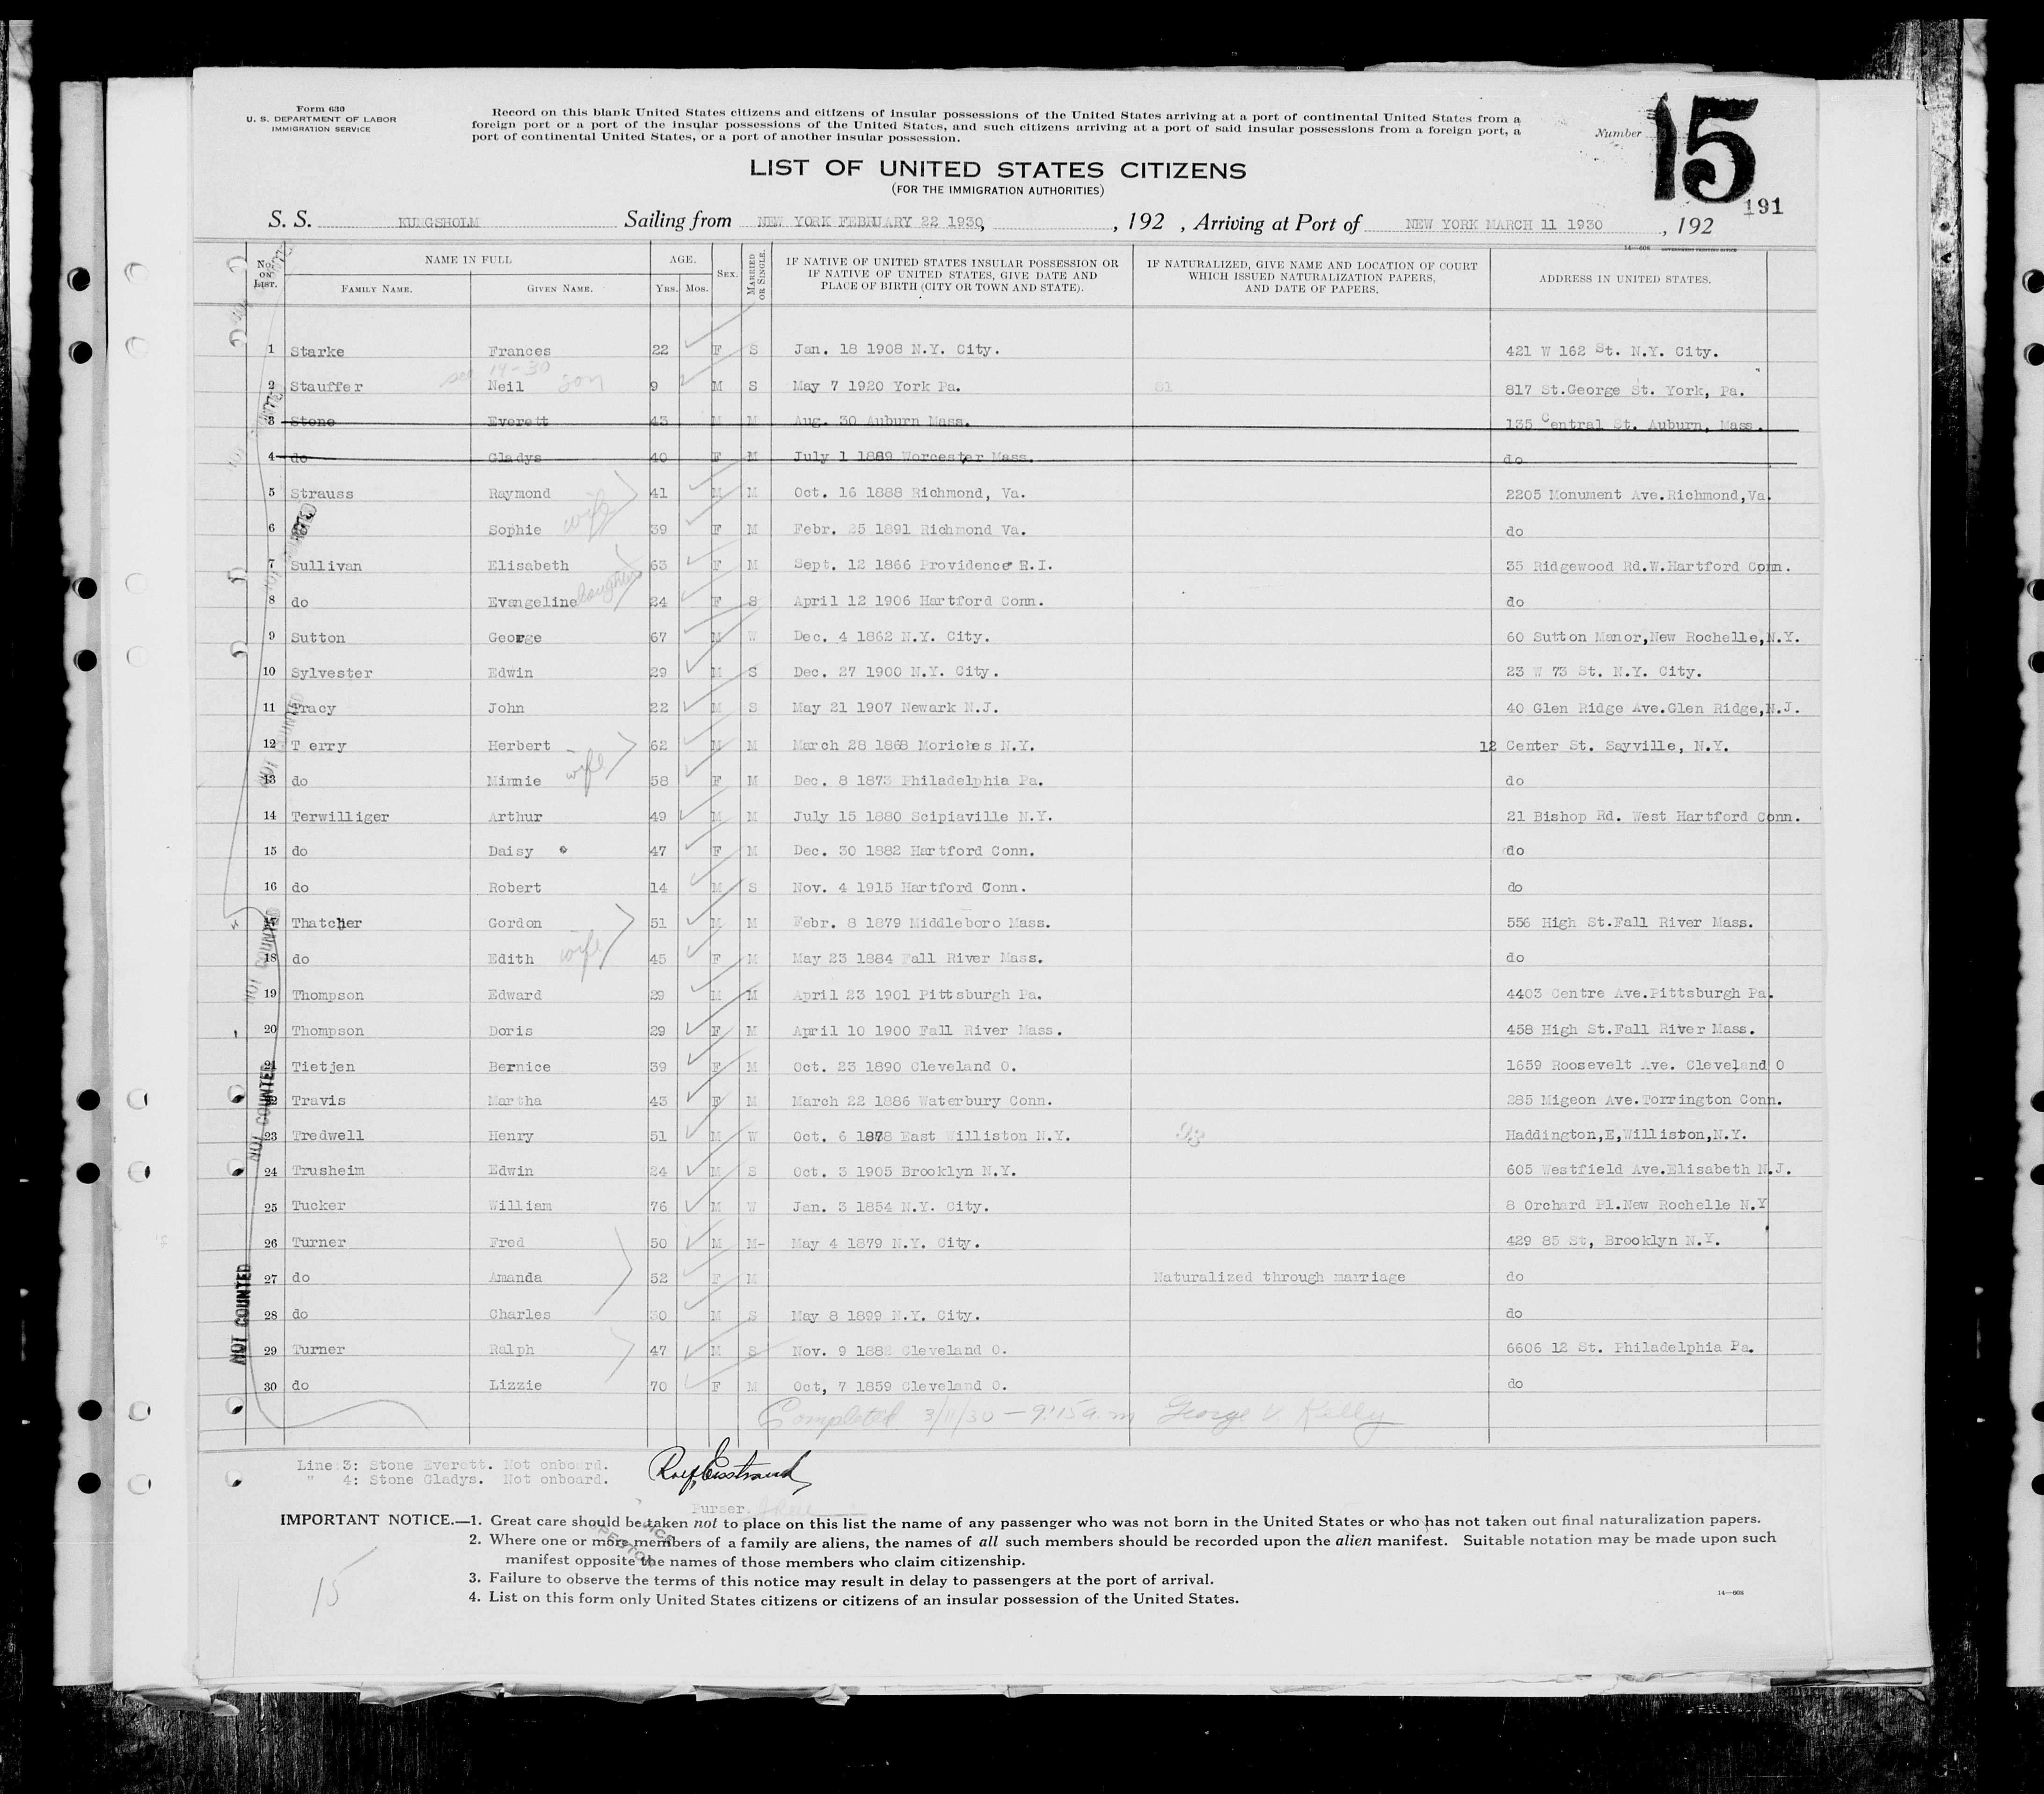 Form 630
U. S. DEPARTMENT OF LABOR
IMMIGRATION SERVICE
Record on this blank United States citizens and citizens of insular possessions of the United States arriving at a port of continental United States from a
foreign port or a port of the insular possessions of the United States, and such citizens arriving at a port of said insular possessions from a foreign port, a
port of continental United States, or a port of another insular possession.
Number 15
191
LIST OF UNITED STATES CITIZENS
(FOR THE IMMIGRATION AUTHORITIES)
S. S. KUNGSHOLM Sailing from NEW YORK FEBRUARY 22 1930, , 192 , Arriving at Port of NEW YORK MARCH 11 1930 , 192
14—608 GOVERNMENT PRINTING OFFICE
No. on List. NAME IN FULL FAMILY NAME. GIVEN NAME. AGE. Yrs. Mos. SEX. MARRIED OR SINGLE. IF NATIVE OF UNITED STATES INSULAR POSSESSION OR IF NATIVE OF UNITED STATES, GIVE DATE AND PLACE OF BIRTH (CITY OR TOWN AND STATE). IF NATURALIZED, GIVE NAME AND LOCATION OF COURT WHICH ISSUED NATURALIZATION PAPERS, AND DATE OF PAPERS. ADDRESS IN UNITED STATES.
1 Starke Frances 22 F S Jan. 18 1908 N.Y. City. 421 W 162 St. N.Y. City.
see 14-30
2 Stauffer Neil son 9 M S May 7 1920 York Pa. 81 817 St.George St. York, Pa.
3 Stone Everett 43 M M Aug. 30 Auburn Mass. 135 Central St. Auburn, Mass.
4 do Gladys 40 F M July 1 1889 Worcester Mass. do
5 Strauss Raymond 41 M M Oct. 16 1888 Richmond, Va. 2205 Monument Ave.Richmond,Va.
6 Sophie wife 39 F M Febr. 25 1891 Richmond Va. do
7 Sullivan Elisabeth 63 F M Sept. 12 1866 Providence R.I. 35 Ridgewood Rd.W.Hartford Conn.
8 do Evangeline daughter 24 F S April 12 1906 Hartford Conn. do
9 Sutton George 67 M W Dec. 4 1862 N.Y. City. 60 Sutton Manor,New Rochelle,N.Y.
10 Sylvester Edwin 29 M S Dec. 27 1900 N.Y. City. 23 W 73 St. N.Y. City.
11 Tracy John 22 M S May 21 1907 Newark N.J. 40 Glen Ridge Ave.Glen Ridge,N.J.
12 T erry Herbert 62 M M March 28 1868 Moriches N.Y. 12 Center St. Sayville, N.Y.
13 do Minnie wife 58 F M Dec. 8 1873 Philadelphia Pa. do
14 Terwilliger Arthur 49 M M July 15 1880 Scipiaville N.Y. 21 Bishop Rd. West Hartford Conn.
15 do Daisy 47 F M Dec. 30 1882 Hartford Conn. do
16 do Robert 14 M S Nov. 4 1915 Hartford Conn. do
17 Thatcher Gordon 51 M M Febr. 8 1879 Middleboro Mass. 556 High St.Fall River Mass.
18 do Edith wife 45 F M May 23 1884 Fall River Mass. do
19 Thompson Edward 29 M M April 23 1901 Pittsburgh Pa. 4403 Centre Ave.Pittsburgh Pa.
20 Thompson Doris 29 F M April 10 1900 Fall River Mass. 458 High St.Fall River Mass.
21 Tietjen Bernice 39 F M Oct. 23 1890 Cleveland O. 1659 Roosevelt Ave. Cleveland O
22 Travis Martha 43 F M March 22 1886 Waterbury Conn. 285 Migeon Ave.Torrington Conn.
23 Tredwell Henry 51 M W Oct. 6 1878 East Williston N.Y. 93 Haddington,E,Williston,N.Y.
24 Trusheim Edwin 24 M S Oct. 3 1905 Brooklyn N.Y. 605 Westfield Ave.Elisabeth N.J.
25 Tucker William 76 M W Jan. 3 1854 N.Y. City. 8 Orchard Pl.New Rochelle N.Y
26 Turner Fred 50 M M- May 4 1879 N.Y. City. 429 85 St, Brooklyn N.Y.
27 do Amanda 52 F M Naturalized through marriage do
28 do Charles 30 M S May 8 1899 N.Y. City. do
29 Turner Ralph 47 M S Nov. 9 1882 Cleveland O. 6606 12 St. Philadelphia Pa.
30 do Lizzie 70 F M Oct, 7 1859 Cleveland O. do
NOT COUNTED
NOT COUNTED
NOT COUNTED
NOT COUNTED
Completed 3/11/30 — 9:15 a.m George V. Kelly
Line 3: Stone Everett. Not onboard.
" 4: Stone Gladys. Not onboard.
Purser
IMPORTANT NOTICE.—1. Great care should be taken not to place on this list the name of any passenger who was not born in the United States or who has not taken out final naturalization papers.
2. Where one or more members of a family are aliens, the names of all such members should be recorded upon the alien manifest. Suitable notation may be made upon such
manifest opposite the names of those members who claim citizenship.
3. Failure to observe the terms of this notice may result in delay to passengers at the port of arrival.
4. List on this form only United States citizens or citizens of an insular possession of the United States.
14—608
15